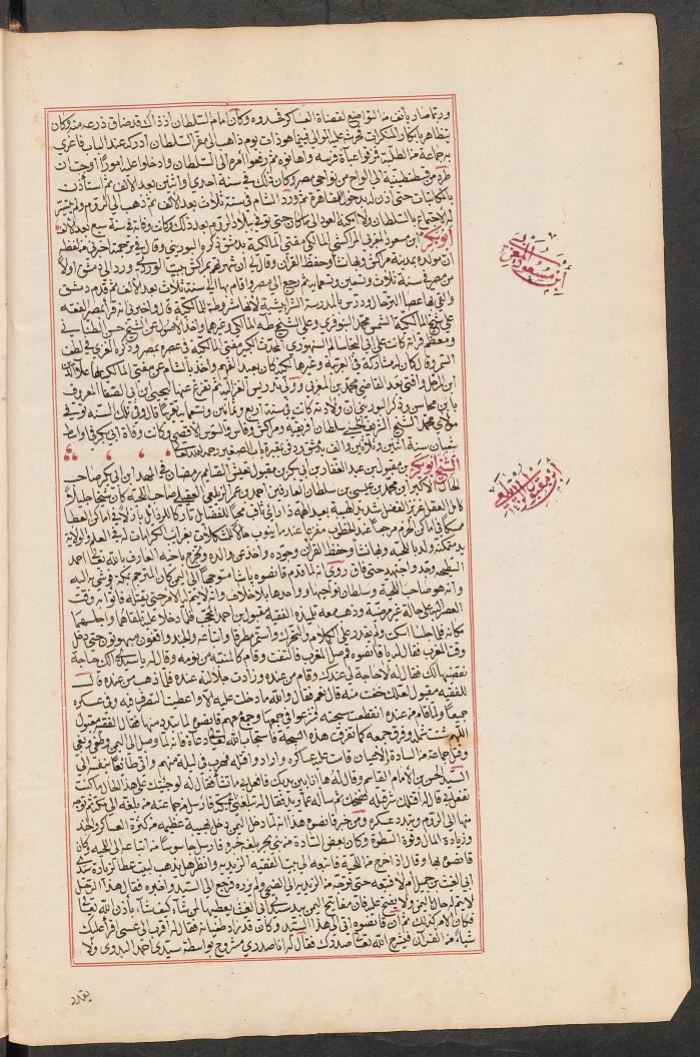 وربما صار يأنف من التواضع لقضاة العساكر فمدوه وكان امام السلطان اذ ذاك قد ضاق ذرعه منه وكان
يتظاهر بانكار المنكرات فهو ذات يوم ذاهب الى مقر السلطان أدركه عند الباب فاغرى
به جماعة من الطلبة فرقوا عباة فرسه واهانوه ثم رفعوا أمره الى السلطان وادخلوا عليه امورا اوجبت ان
طرده من قسطنطينية الى الواح من نواحي مصر وكان ذلك في سنة احدى واثنين بعد الألف ثم استأذن
بالمكاتبات حتى أذن له بدخول القاهرة ثم ورد الشام في سنة ثلاث بعد الألف ثم ذهب الى الروم ولم يتيسر
له الاجتماع بالسلطان ولا يمكنه العود الى مكان حتى توفي ببلاد الروم بعد ذلك وكان وفاته في سنة سبع بعد الألف
أبو بكر ابن مسعود المغربي المراكشي المالكي مفتي المالكية بدمشق ذكره البوريني وقال في ترجمته اخبرني من لفظه
ان مولده بمدينة مراكش وبها نشأ وحفظ القرآن وقال لي ان شهرتهم بمراكش ببيت الوردي ورد الى دمشق اولا
من مصر في سنة ثلاث وتسعين وتسعمائة ثم رجع الى مصر واقام بها الى سنة ثلاث بعد الألف ثم قدم دمشق
والقى بها عصا الترحال ودرس بالمدرسة الشرابيشية لانها مشروطة للمالكية قال واخبرني انه قرأ بمصر الفقه
على شيخ المالكية الشمس محمد البنوفري وعلى الشيخ طه المالكي وغيرهما واخذ الأصول عن الشيخ حسن الطناني
ومعظم قراءته كانت على ابي النجا سالم السنهوري المحدث الكبير مفتي المالكية في عصره بمصر وذكره الغزي في لطف
السمر وقال كان له مشاركة في العربية وغيرها لكنه كان بعيد الفهم واخذ بالشام عن مفتي المالكية بها علاء الدين
ابن المرحل وافتى بعد القاضي محمد بن المغربي وولي تدريس الغزالية ثم تفرغ عنها ليحيى بن ابي الصفا المعروف
بابن محاسن وذكر البوريني ان ولادته كانت في سنة اربع وثمانين وتسعمائة تقريبا قال وفي تلك السنة توفي
مولاي محمد الشيخ الشريف الحسني سلطان افريقية ومراكش وفاس والسوس الاقصى وكانت وفاة ابي بكر في اواسط
شعبان سنة اثنين وثلاثين والف بدمشق ودفن بمقبرة باب الصغير رحمه الله تعالى
الشيخ ابو بكر بن مقبول بن عبد الغفار بن ابي بكر بن مقبول نعيش القايم رمضان في المهد ابن ابي بكر صاحب
الحال الاكبر ابن محمد بن عيسى بن سلطان العارفين احمد بن عمر الزيلعي العقيلي صاحب اللحية كان شيخا جليلا
كامل العقل غزير الفضل شديد الهيبة بعيد الهمة ذا رأي ثاقب محبا للفضائل تاركا للرذائل باذلا في اماكن العطا
ممسكا في اماكن الحزم مرجعا عند الخطوب مفزعا عندما ينوب حالك كلات بغرائب الكرامات له في العلم والولاية
يد متمكنة ولد باللحية وبها نشأ وحفظ القرآن وجوده واخذ عن والده وتخرج باخيه العارف بالله تعالى احمد
السطيحة وجد واجتهد حتى فاق روي انه لما قدم قانصوه باشا متوجها الى اليمن كان المترجم بمكة فوشي به اليه
وانه هو صاحب اللحية وسلطان نواحيها وواحدها بلا خلاف وانه لا يتم له الامر حتى يقتله فاتوا به وقت
العصر اليه على حالة غير مرضية وذهب معه تلميذه الفقيه مقبول بن احمد المحجب فلما دخلا عليه تلقاهما واجلسهما
مكانه فلما جلسا سكت ولم يقدر على الكلام والتحرك واستمر مطرقا واتباعه والجند واقفون مبهوتون حتى دخل
وقت المغرب فقال له يا قانصوه قم صل المغرب فالتفت وقام كالمنتبه من نومه وقال له يا سيدي ألك حاجة
نقضيها لك فقال له لا حاجة لي عندك وقام من عنده وزادت جلالته عنده فلما ذهب من عنده قال
للفقيه مقبول لعلك خفت منه قال نعم فقال والله ما دخلت عليه الا واعطيت التصرف فيه وفي عسكره
جميعا ولما قام من عنده انقطعت سبحته فنزعوا في جمعها وجمع معهم قانصوه لما تبدد منها فقال الفقيه مقبول
اللهم شتت شمله وفرق جمعه كما تفرقت هذه السبحة فاستجاب الله تعالى دعاه فانه لما وصل الى اليمن وطغى وبغى
وقتل جماعة من السادة الاخيار قامت عليه عساكره وارادوا قتله فهرب في ليلة منهم واتى طائعا بنفسه الى
السيد الحسن بن الامام القاسم وقال له ها انا بين يديك فافعل بي ما تشأ فقال له لو جئتك على هذا الحال ما كنت
تفعل بي قال له اقتلك شر قتلة فضحك ثم سأله عما يريد فقال له تبلغني مكة فارسل معه جماعته من بلغه الى مكة ثم توجه
منها الى الروم وتبدد عسكره ومن خبر قانصوه هذا انه لما دخل اليمن دخل بهيبة عظيمة من كثرة العساكر والجند
وزيادة المال وقوة السطوة وكان بعض السادة من بني بحر بلغه خبره فارسل جاسوسا من اتباعه الى اللحية وكان
قانصوه بها وقال اذا خرج من اللحية فاتبعه الى بيت الفقيه الزيدية وانظر هل يذهب لبيت عطا لزيارة سيدي
ابي الغيث بن جميل أم لا فتبعه حتى توجه من الزيدية الى الضحي ولم يزره فرجع الى السيد واخبره فقال هذا الرجل
لا يتم له حال باليمن ولا يفتح عليه فان مفاتيح اليمن بيد سيدي ابي الغيث يعطيها لمن شاء كيف شاء بأذن الله تعالى
فكان الامر كذلك ثم أن قانصوه اتى الى هذا السيد وكان قد زاد طغيانه فقال له أقرب الي عسى أقرأ عليك
شيأ من القرآن فيشرح الله تعالى صدرك فقال له انا صدري مشروح بواسطة سيدي احمد البدوي ولا
يقدر
ابن مسعود المغربي
ابن مقبول الزيلعي